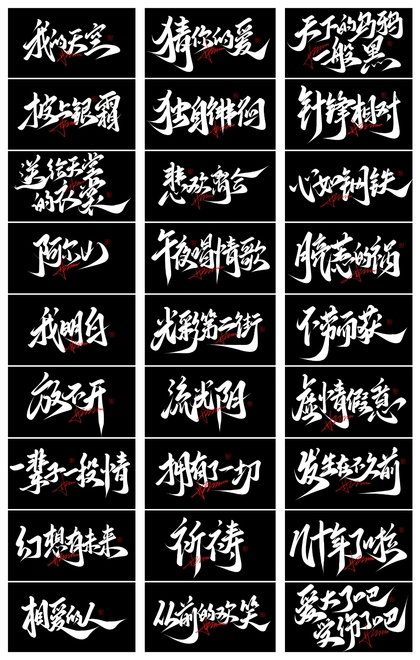 我的天空
猜你的爱
天下的乌鸦
一般黑
披上银霜
独自徘徊
针锋相对
送给天堂
的衣裳
悲欢离合
心如钢铁
阿尔山
午夜唱情歌
月亮惹的祸
我明白
光彩第二街
不劳而获
放不开
流光阴
虚情假意
一辈子一段情
拥有了一切
发生在不久前
幻想有未来
祈祷
几十年了啦
相爱的人
从前的欢笑
爱大了吧
实伤了吧